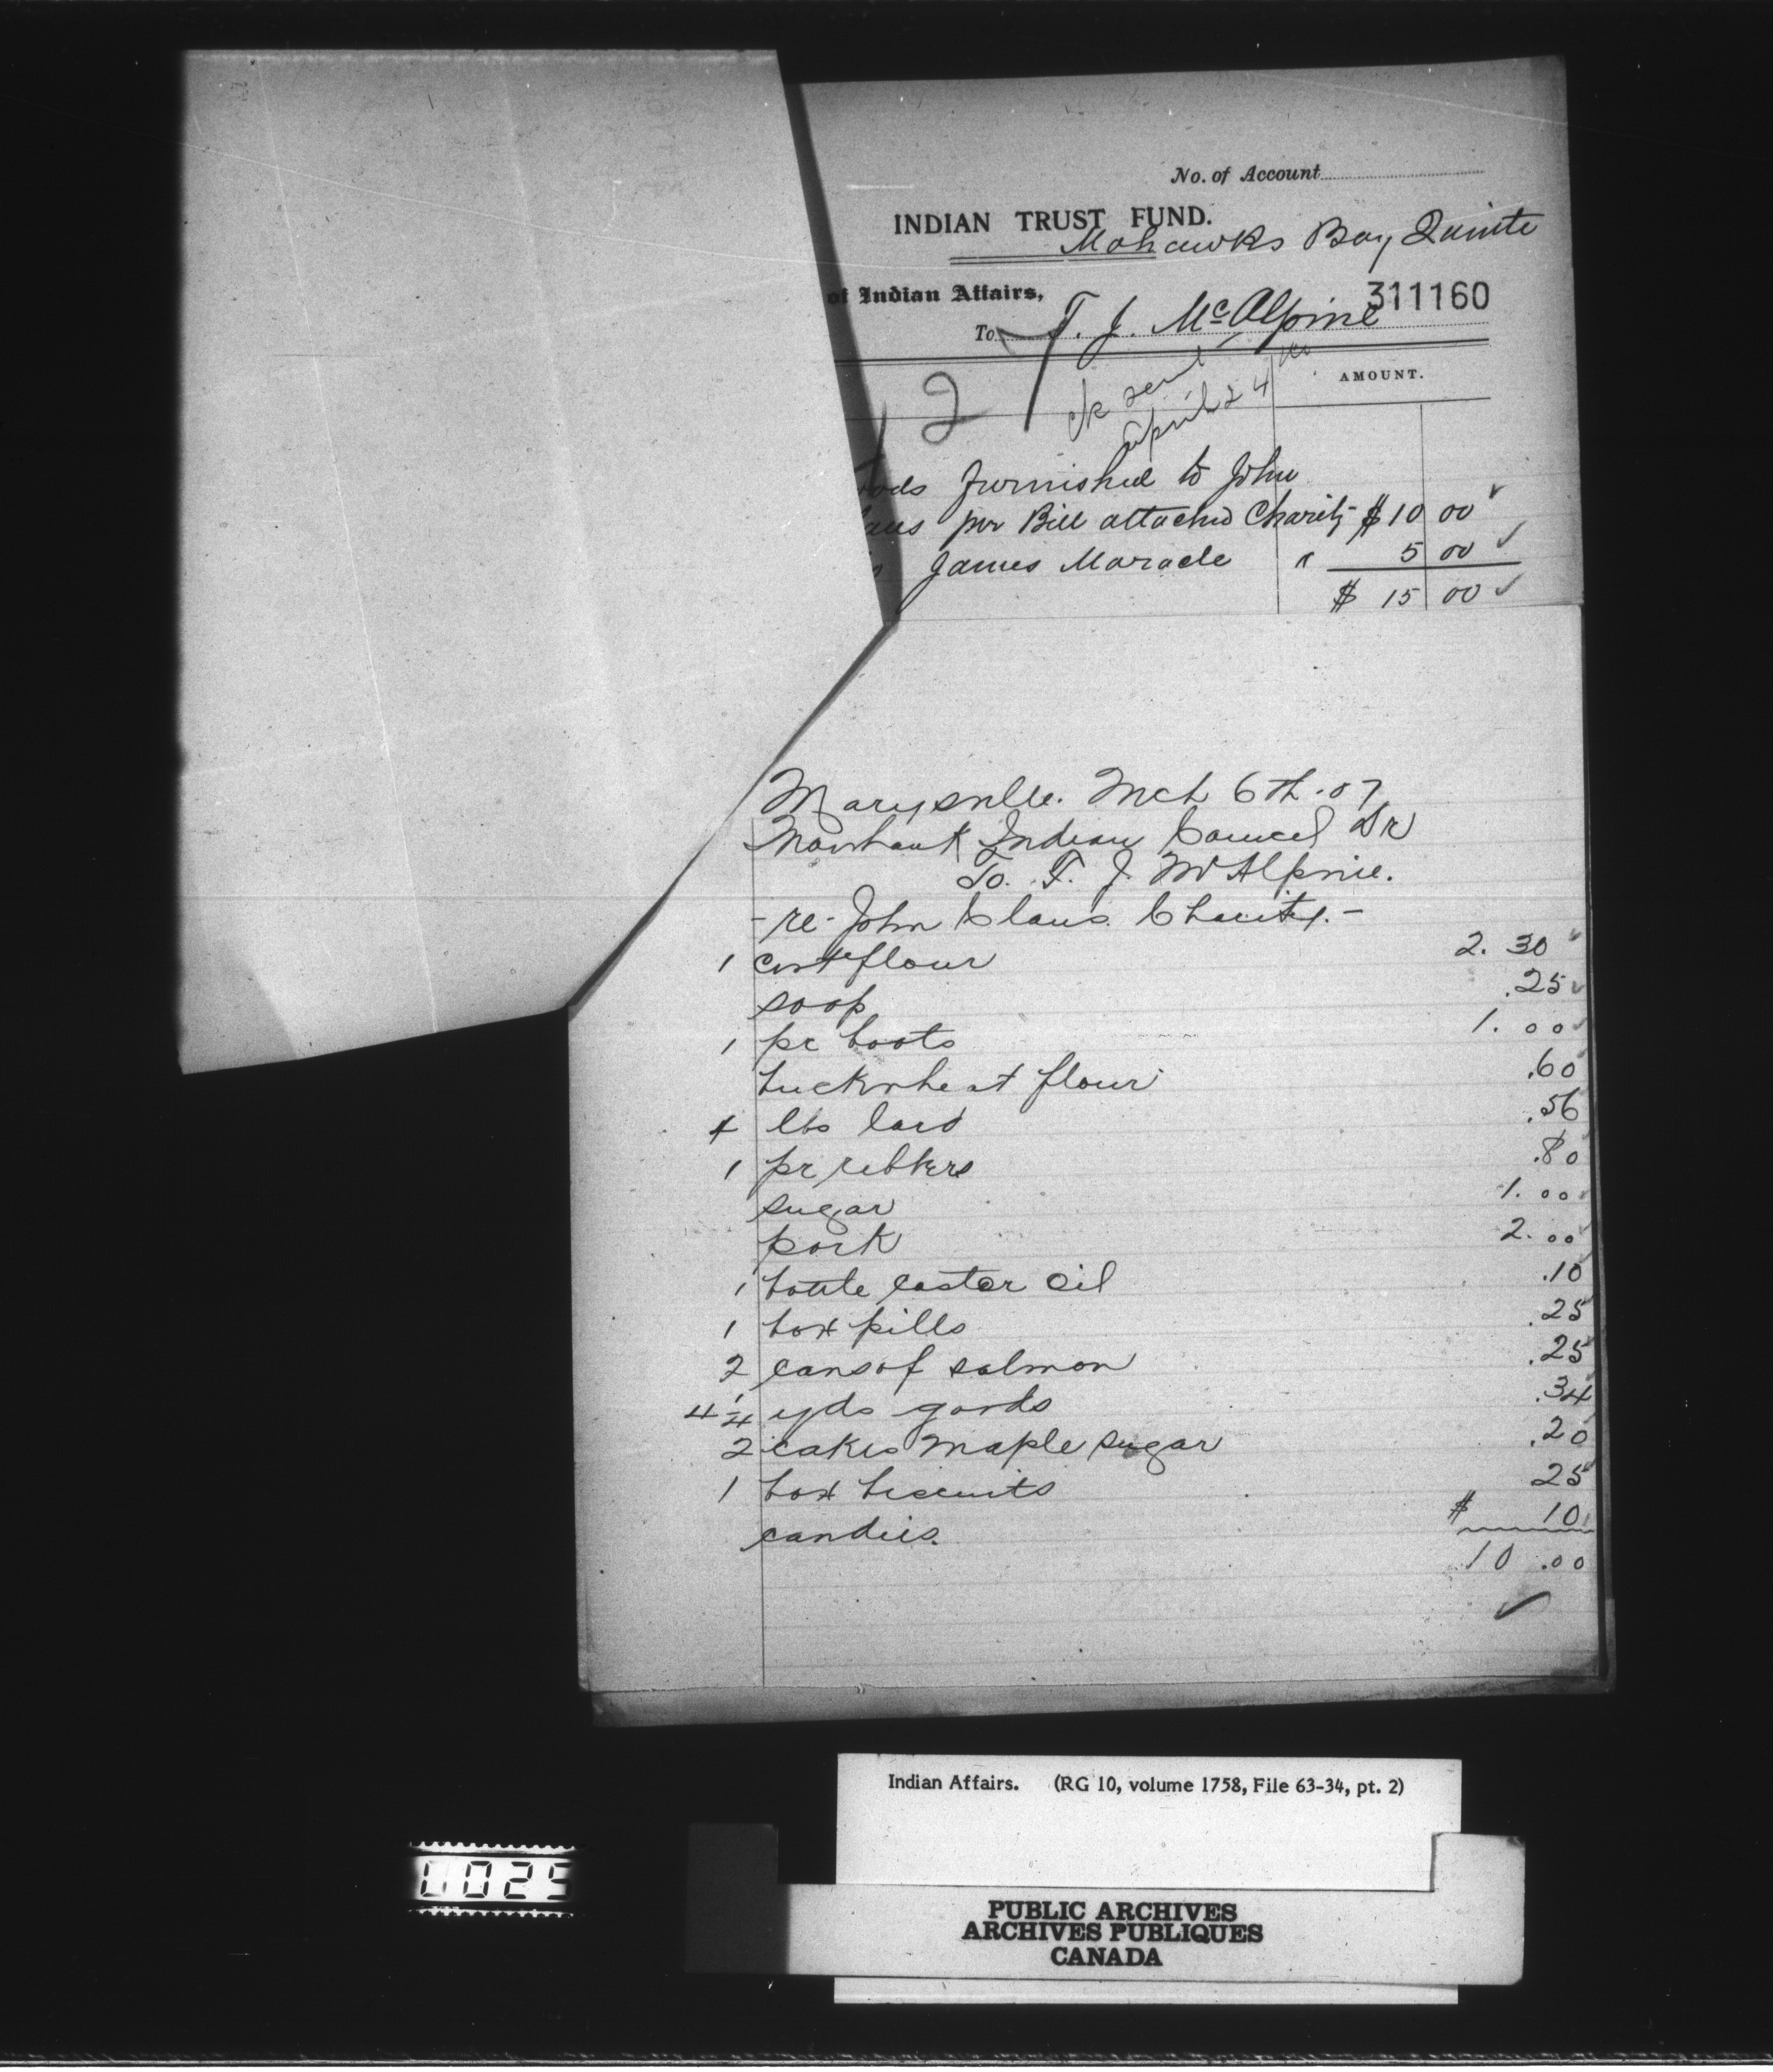 No. of Account
INDIAN TRUST FUND.
Mohawks Bay Quinte
of Indian Affairs,
311160
To T. J. McAlpine
AMOUNT.
2
ck sent
April 24
ods furnished to John
laus per Bill attached Charity $10 00
James Maracle " 5 00
$ 15 00
Marysville. Mch 6th. 07
Mowhauk Indian Councel Dr
To. T. J. McAlpine.
- re- John Claus. Charity. -
1 cwt flour 2. 30
soap .25
1 pr boots 1. 00
buckwheat flour .60
4 lbs lard .56
1 pr rubbers .80
sugar 1. 00
pork 2. 00
1 bottle caster oil .10
1 box pills .25
2 cans of salmon .25
4 1/4 yds goods .34
2 cakes maple sugar .20
1 box biscuits 25
candies. $ 10
10 .00
Indian Affairs. (RG 10, volume 1758, File 63-34, pt. 2)
0025
PUBLIC ARCHIVES
ARCHIVES PUBLIQUES
CANADA